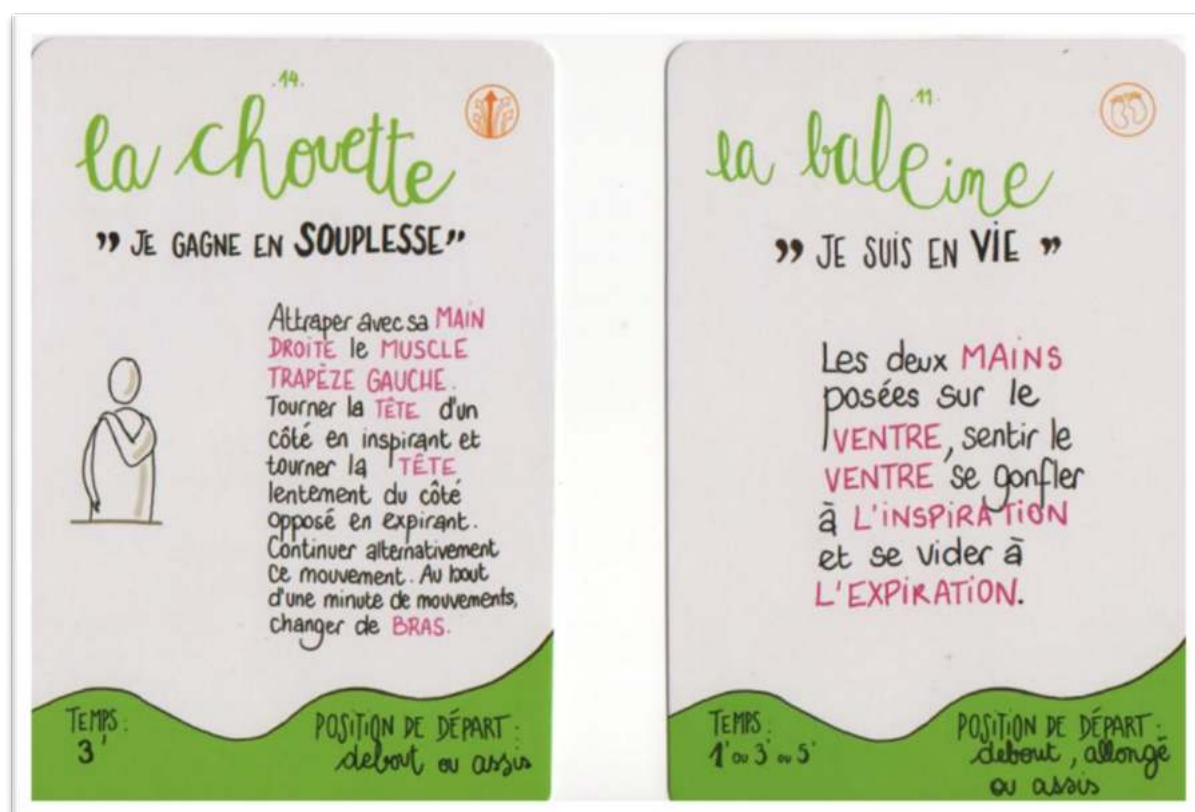 .14.
la chouette
" JE GAGNE EN SOUPLESSE"
Attraper avec sa MAIN
DROITE le MUSCLE
TRAPÈZE GAUCHE.
Tourner la TÊTE d'un
côté en inspirant et
tourner la TÊTE
lentement du côté
opposé en expirant.
Continuer alternativement
ce mouvement. Au bout
d'une minute de mouvements,
changer de BRAS.
TEMPS :
3'
POSITION DE DÉPART :
debout ou assis
.11.
la baleine
" JE SUIS EN VIE "
Les deux MAINS
posées sur le
VENTRE, sentir le
VENTRE se gonfler
à L'INSPIRATION
et se vider à
L'EXPIRATION.
TEMPS :
1' ou 3' ou 5'
POSITION DE DÉPART :
debout, allongé
ou assis